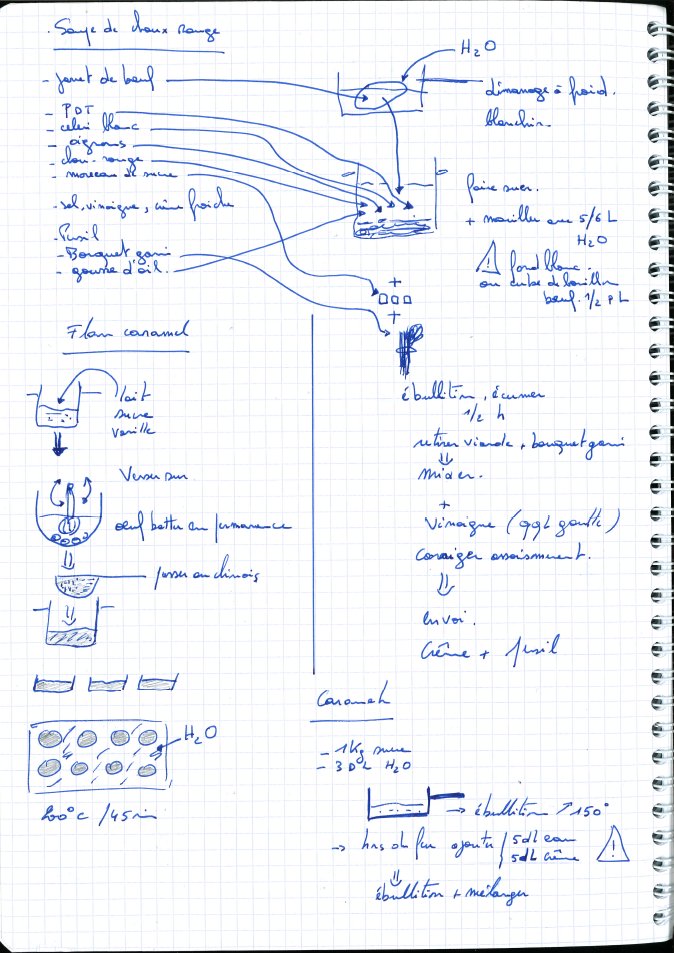 . Soupe de choux rouge
- jarret de bœuf
- PDT
- celeri blanc
- oignons
- chou rouge
- morceau de sucre
- sel, vinaigre, crème fraiche
- Persil
- Bouquet garni
- gousse d'ail.
H₂O
démarrage à froid.
blanchir.
faire suer.
+ mouiller avec 5/6 L
H₂O
! fond blanc
ou cube de bouillon
bœuf. 1/2 p L
+
+
ébullition, écumer
1/2 h
retirer viande + bouquet garni
⇓
mixer.
+
Vinaigre (qql goutte)
corriger assaisonnement.
⇓
envoi.
Crème + persil
Flan caramel
lait
sucre
vanille
Verser sur
œuf battu en permanence
⇓
passer au chinois
⇓
H₂O
200°C / 45 min
Caramel
- 1 Kg sucre
- 3 DL H₂O
→ ébullition ↗ 150°
→ hors du feu ajouter / 5dL eau
5dL crème !
⇓
ébullition + mélanger